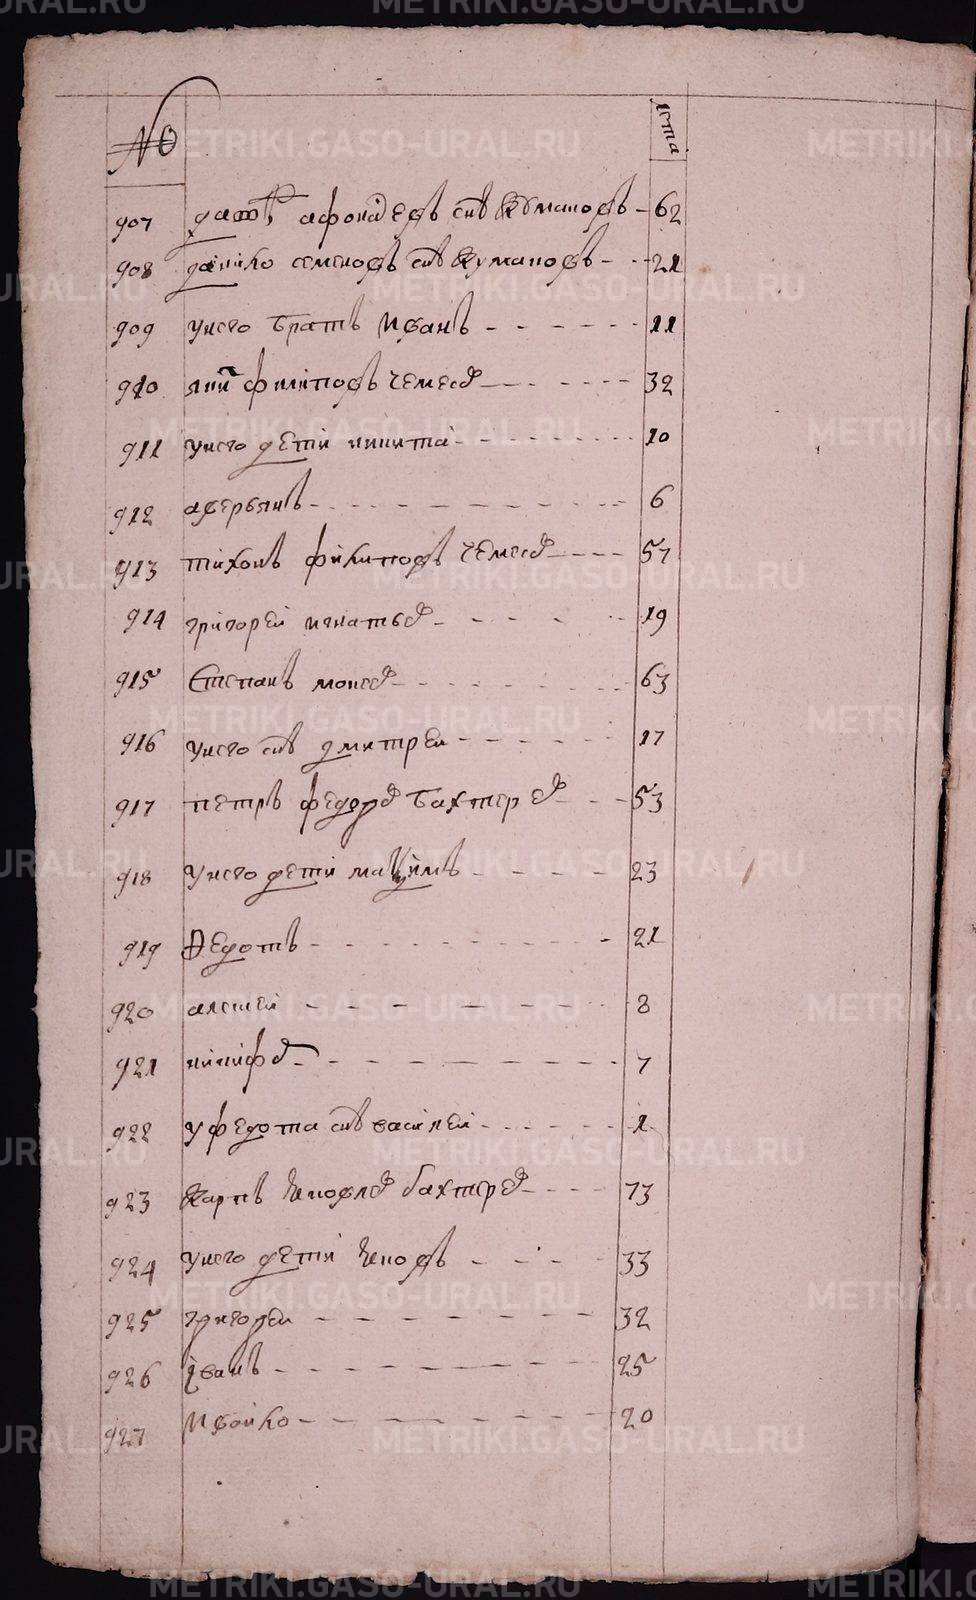 № лета
907 афонасевъ снъ Кумановъ 62
908 данило семеновъ снъ Кумановъ 21
909 унего братъ Иванъ 11
910 филиповъ чемесов 32
911 унего дети никита 10
912 аверьянъ 6
913 тихонъ филиповъ чемесов 57
914 григорей игнатьев 19
915 Степанъ мосеев 63
916 унего снъ дмитреи 17
917 петръ федоров бахтерев 53
918 унего дети маѯимъ 23
919 Федотъ 21
920 алексеи 8
921 никифор 7
922 уфедота снъ василеи 1
923 Карпъ Яковлев бахтерев 73
924 унего дети Яковъ 33
925 григореи 32
926 іванъ 25
927 Ивойко 20
METRIKI.GASO-URAL.RU